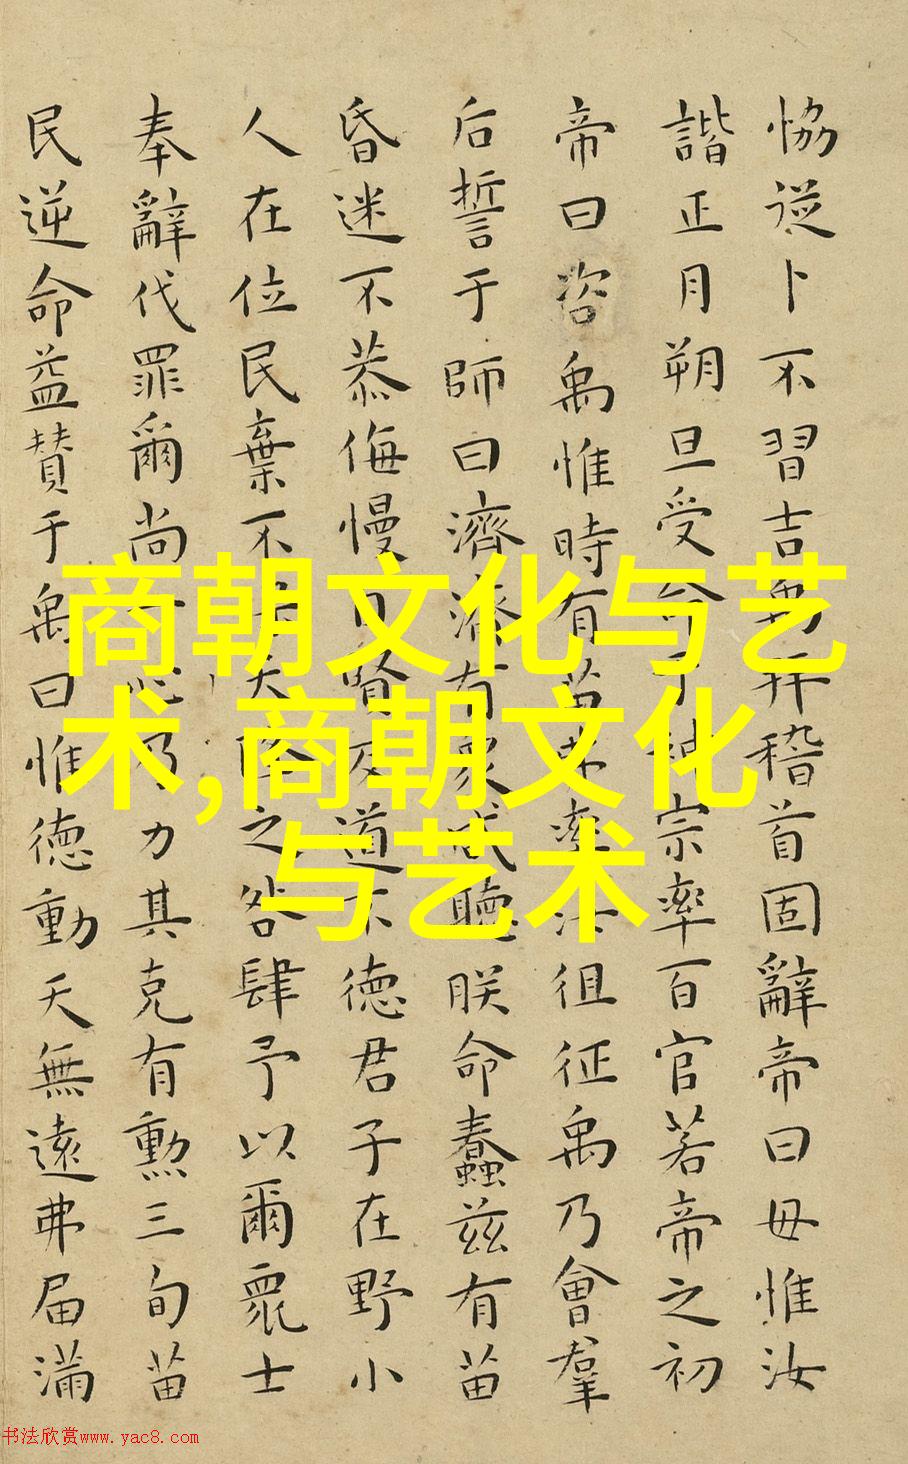 恊從卜不習吉禹拜稽首固辭帝曰毋惟汝
諧正月朔旦受命于神宗率百官若帝之初
帝曰咨禹惟時有苗弗率汝徂征禹乃會羣
后誓于師曰濟濟有衆咸聽朕命蠢茲有苗
昏迷不恭侮慢自賢反道德君子在野小
人在位民棄不天降之咎肆予以爾衆士
奉辭伐罪爾尚一心乃力其克有勲三旬苗
民逆命益贊于禹曰惟德動天無遠弗届滿
商朝文化与艺
术,商朝文化
与艺术
书法欣赏www.yac8.com